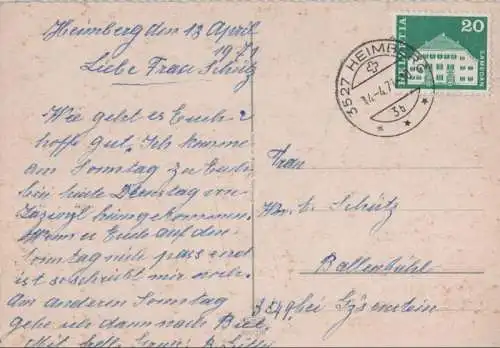 Heimberg den 13 April
1971
Liebe Frau Schütz
Wie geht es Euch?
hoffe gut. Ich komme
am Sonntag zu Euch
bin heute Dienstag von
Zäziwyl heimgekommen.
Wenn es Euch auf den
Sonntag nicht passend
ist so schreibt mir noch.
Am anderen Sonntag
gehe ich dann nach Biel.
Mit
HELVETIA
20
SAMEDAN
3527 HEIMBERG
14.-4.71
3b
Frau
Schütz
Ballenbühl
3549 bei